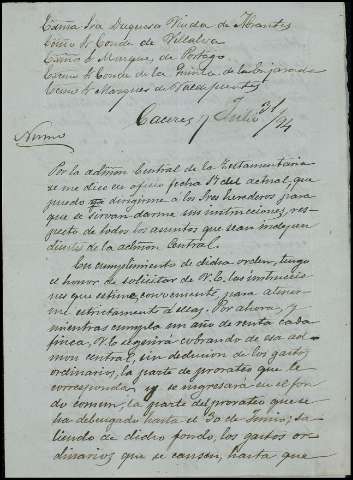 Exma Sra Duquesa Viuda de Abrantes
Exmo Sr Conde de Villalva
Exmo Sr Marques de Portago
Excmo Sr Conde de la Quinta de la Enjarada
Excmo Sr Marques de Valdefuentes
Caceres y Julio 31/24
Por la admon Central de la Testamentaria
se me dice en oficio fecha 17 del actual, que
puedo dirigirme a los Sres herederos para
que se sirvan darme sus instrucciones, res-
pecto de todos los asuntos que sean indepen
dientes de la admon Central.
En cumplimiento de dicha orden, tengo
el honor de solicitar de V.E. las instruccio
nes que estime conveniente, para atener
me estrictamente a ellas. Por ahora, y
mientras cumpla un año de renta cada
finca, V.E. seguirá cobrando de esa ad-
mon central, sin deduccion de los gastos
ordinarios, la parte de prorateo que le
corresponda, y se ingresará en el fon
do comun, la parte del prorateo que se
ha devengado hasta el 30 de Junio; sa-
liendo de dicho fondo, los gastos or-
dinarios que se causen, hasta que